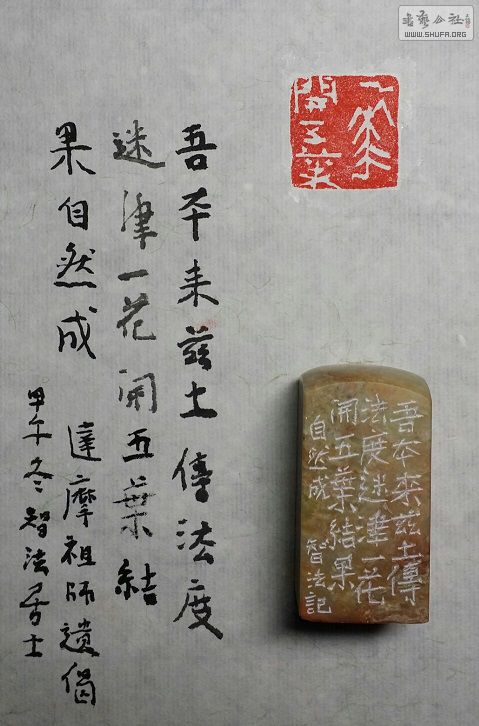 書藝公社
WWW.SHUFA.ORG
一華
開五葉
吾本来茲土傳法度
迷津一花開五葉結
果自然成
達摩祖师遺偈
甲午冬智法居士
吾本来茲土傳
法度迷津一花
開五葉結果
自然成
智法記